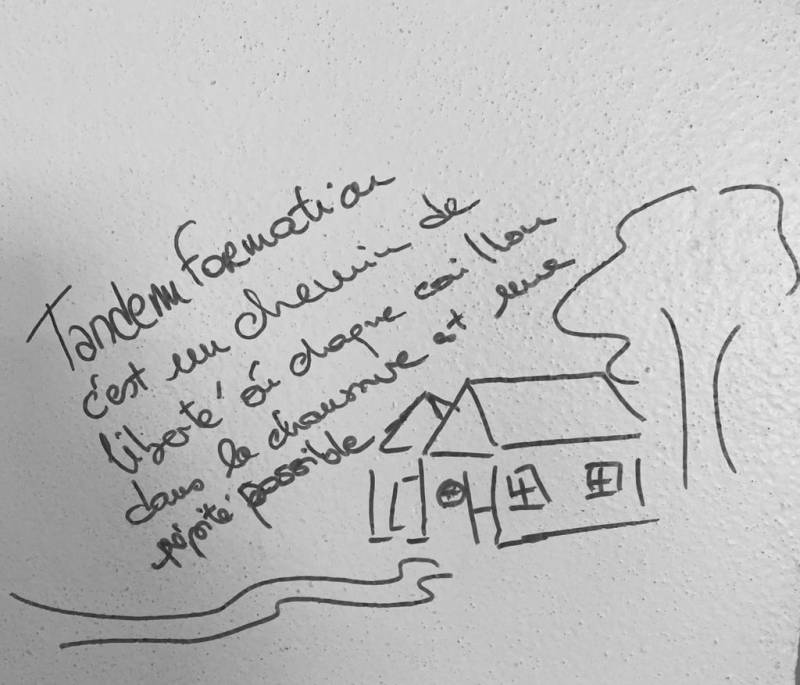 Tandem Formation
c'est un chemin de
liberté où chaque caillou
dans la chaussure est une
pépite possible